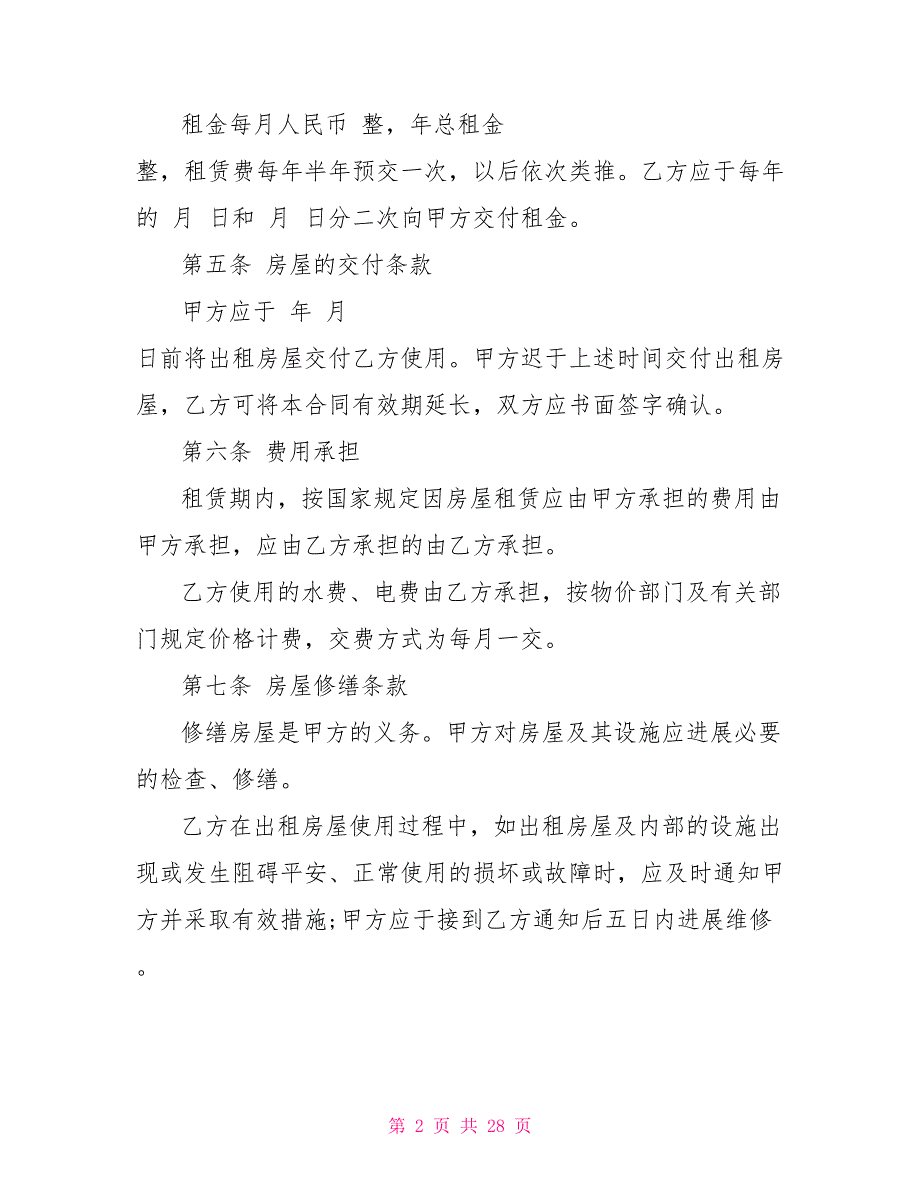 租金每月人民币 整，年总租金
整，租赁费每年半年预交一次，以后依次类推。乙方应于每年
的 月 日和 月 日分二次向甲方交付租金。
第五条 房屋的交付条款
甲方应于 年 月
日前将出租房屋交付乙方使用。甲方迟于上述时间交付出租房
屋，乙方可将本合同有效期延长，双方应书面签字确认。
第六条 费用承担
租赁期内，按国家规定因房屋租赁应由甲方承担的费用由
甲方承担，应由乙方承担的由乙方承担。
乙方使用的水费、电费由乙方承担，按物价部门及有关部
门规定价格计费，交费方式为每月一交。
第七条 房屋修缮条款
修缮房屋是甲方的义务。甲方对房屋及其设施应进展必要
的检查、修缮。
乙方在出租房屋使用过程中，如出租房屋及内部的设施出
现或发生阻碍平安、正常使用的损坏或故障时，应及时通知甲
方并采取有效措施;甲方应于接到乙方通知后五日内进展维修
。
第 2 页 共 28 页